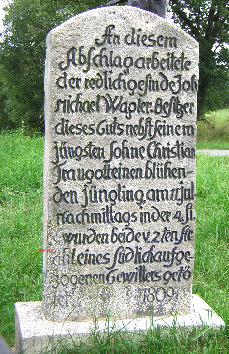 An diesem
Abschlag arbeitete
der redlich gesinde Joh
michael Wapler. Besitzer
dieses Guts nebst seinem
jüngsten Sohne Christian
Traugott einen blühen
den jüngling, am 11 Jul
nachmittags in der 4. St
wurden beide v. 2ten str
ahl eines südlich aufge
zogenen Gewitters getö
1809